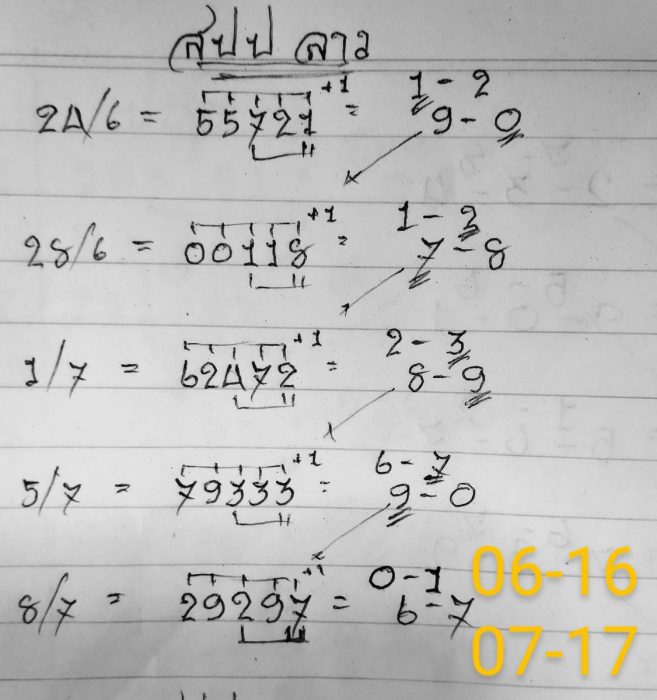 สปป ลาว
24/6 = 55721 +1 = 1-2
9-0
28/6 = 00118 +1 = 1-2
7-8
1/7 = 62472 +1 = 2-3
8-9
5/7 = 79333 +1 = 6-7
9-0
8/7 = 29297 +1 = 0-1
6-7
06-16
07-17